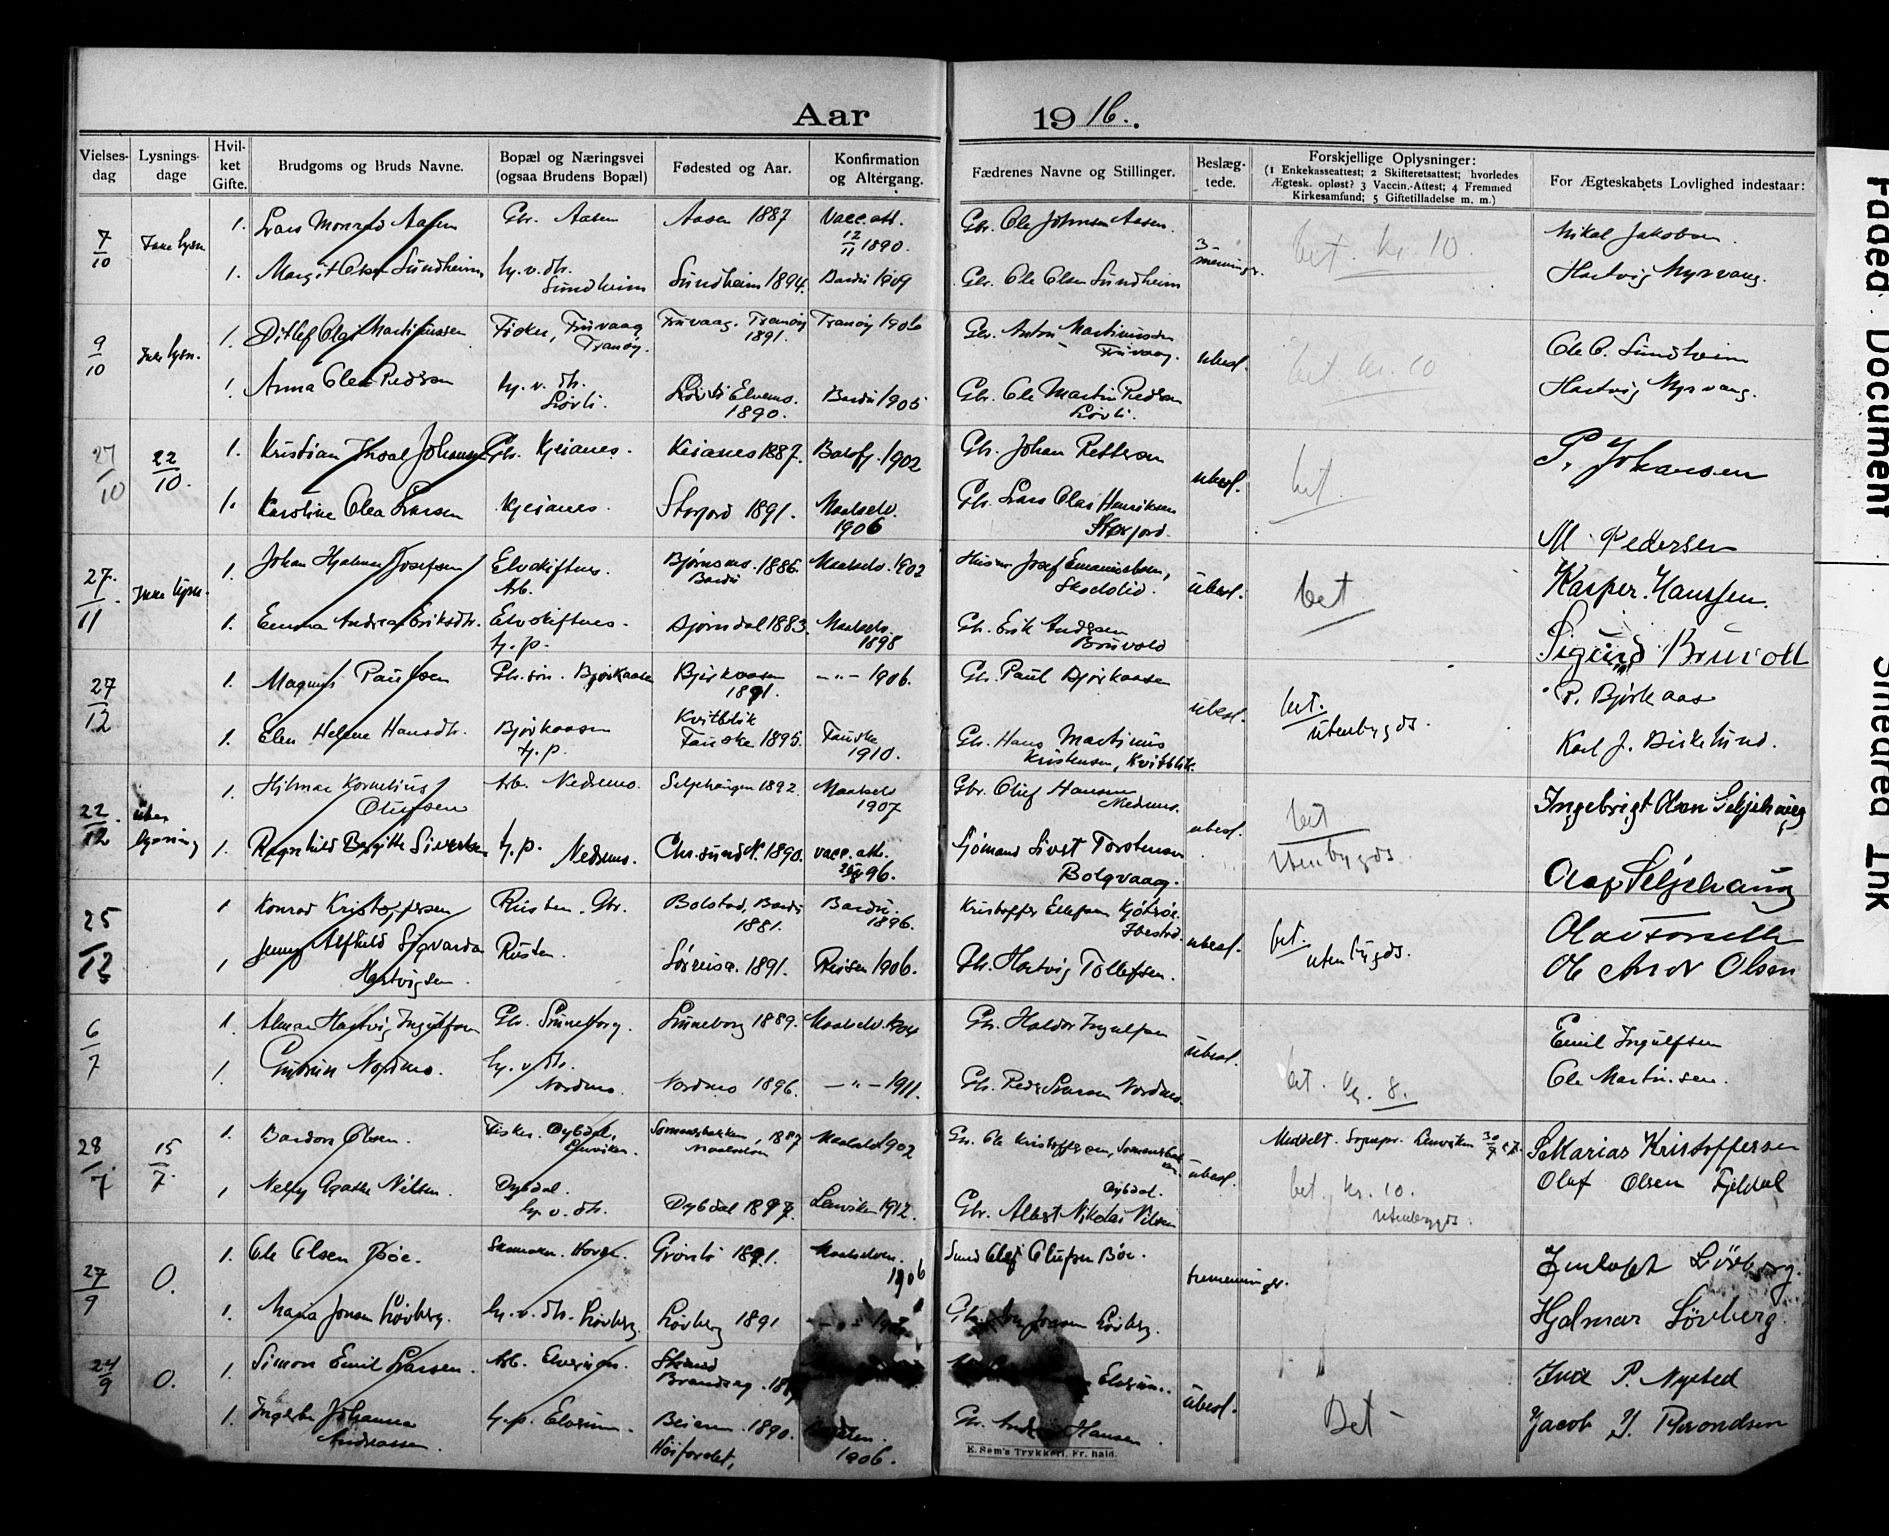 Aar 1916.
Vielses-dag
Lysnings-dage
Hvil-ket Gifte.
Brudgoms og Bruds Navne.
Bopæl og Næringsvei (ogsaa Brudens Bopæl)
Fødested og Aar.
Konfirmation og Altergang.
Fædrenes Navne og Stillinger.
Beslæg-tede.
Forskjellige Oplysninger:
(1 Enkekasseattest; 2 Skifteretsattest; hvorledes
Ægtesk. opløst? 3 Vaccin.-Attest; 4 Fremmed
Kirkesamfund; 5 Giftetilladelse m. m.)
For Ægteskabets Lovlighed indestaar:
7/10 Ikke lysn
1. Lars Monrad Aasen Gbr. Aasen Aasen 1887 Vacc. att. 12/11 1890. Gbr. Ole Johnsen Aasen. 3-menninger. bet. kr. 10. Mikal Jakobsen.
1. Margit Olsen Sundheim, hj. v. dtr. Sundheim Sundheim 1894. Bardu 1909 Gbr. Ole Olsen Sundheim Hartvig Myrvang.
9/10 Ikke lysn.
1. Ditlef Olai Martinussen Fisker, Frøvaag Tranøy. Tranøy 1891. Tranøy 1906 Gbr. Anton Martinussen ubesl. bet kr. 10 Ole O. Sundheim
1. Anna Olea Pedersen hj. v. dtr. Løvli. 1890. Bardu 1905 Gbr. Ole Martin Pedersen Løvli. Hartvig Myrvang.
27/10 22/10.
1. Kristian Johansen Gbr. Kjeianes. Keianes 1887. Balsfj. 1902 Gbr. Johan Pettersen ubesl. bet. P. Johansen
1. Karoline Olea Larsen Kjeianes. Storfjord 1891. Maalselv. 1906 Gbr. Lars Olai Henriksen Storfjord. M. Pedersen
27/11 Ikke lysn.
1. Johan Hjalmar Josefsen Elveskiftnes. Arb. 1886. Bardu Maalselv. 1902 Josef Emanuelsen, ubesl. bet Kasper Hanssen.
1. Emma Andrea Eriksdtr. Elveskiftnes. hj. p. Bjørndal 1883. Maalselv. 1898 Gbr. Erik Andersen Bruvold Sigurd Bruvoll
27/12
1. Magnus Paulsen Gbr. søn. Bjørkaasen Bjørkaasen 1891. — " — 1906. Gbr. Paul Bjørkaasen ubesl. bet. utenbygds. P. Bjørkaas
1. Elen Helene Hansdtr. Bjørkaasen hj. p. Kvitblik Fauske 1895. Fauske 1910. Gbr. Hans Martinus Kristensen, Kvitblik. Karl J. Birkelund.
22/12. uten lysning
1. Hilmar Kornelius Olufsen Arb. Nedremo. 1892. Maalselv 1907 Gbr. Oluf Hansen Nedremo. ubesl. bet utenbygds. Ingebrigt Olsen Seljehaug
1. Ragnhild Bergitte Sivertsen hj. p. Nedremo. Chr.sund N. 1890. vacc. att. 96. Sjømand Sivert Torstensen Bolgvaag. Olaf Seljehaug
25/12
1 Konrad Kristoffersen Rusten. Gbr. Bolstad, Bardu 1881. Bardu. 1896. Kristoffer Ellefsen Ibestad. ubesl. bet. utenbygds.
1 Jenny Alfhild Sigvarda Hartvigsen. Rusten. Sørreisa. 1891. Reisen 1906. Gbr. Hartvig Tollefsen. Ole Andr Olsen
6/7
1. Almar Hartvig Ingulfsen Gbr. Sunneborg. Sunneborg 1889. Maalselv. Gbr. Haldor Ingulfsen ubesl. Emil Ingulfsen
1. Gudrun Nordmo. hj. v. dtr. Nordmo. Nordmo 1896. — " — 1911. Gbr. Peder Larsen Nordmo. bet. kr. 8. Ole Martinsen.
28/7 15/7.
1. Bardon Olsen. Fisker. Dybdal, Lenviken. 1887 Maalselv 1902 Gbr. Ole Kristoffersen, ubesl. Meddelt. Sogneprs. Lenviken Sakarias Kristoffersen
1 Nelly Agathe Nilsen. Dybdal. hj. v. dtr. Dybdal 1897. Lenviken 1912. Dybdal. Gbr. Albert Nikolai Nilsen bet. kr. 10. utenbygds. Olaf Olsen Fjeldal
27/9 0.
1. Ole Olsen Bøe. Grønli 1891. Maalselven. 1906 Oluf Olufsen Bøe. tremenninger.
1. Maria Jonsen Løvberg. hj. v. dtr. Løvberg Løvberg 1891 Løvberg. Hjalmar Løvberg
24/9 0.
1. Simon Emil Larsen. Arb. Elverum. Elverum. ubesl. P. Nysted
1. Johanna Andreassen. hj. p. Elverum Beiarn. 1890. 1906. Gbr. Andreas Hansen. Bet Jacob
E. Sem's Trykkeri, Fr.hald.
Faded Document
Smeared Ink